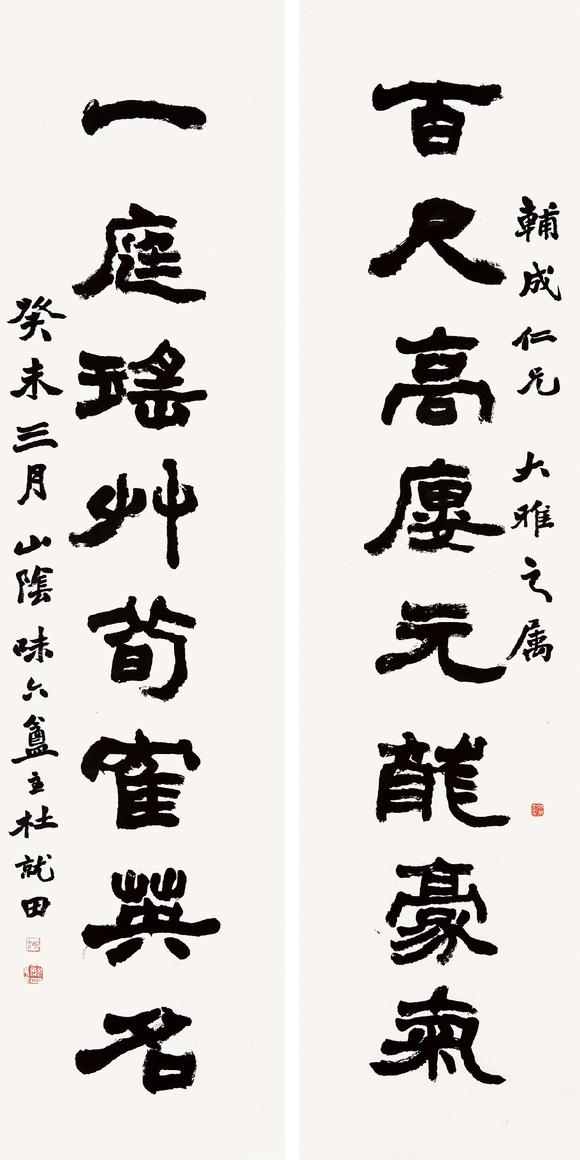 輔成仁兄 大雅之属
百尺高廔元龍豪氣
一庭瑤艸荀寉英名
癸未三月山陰味六盦主杜就田